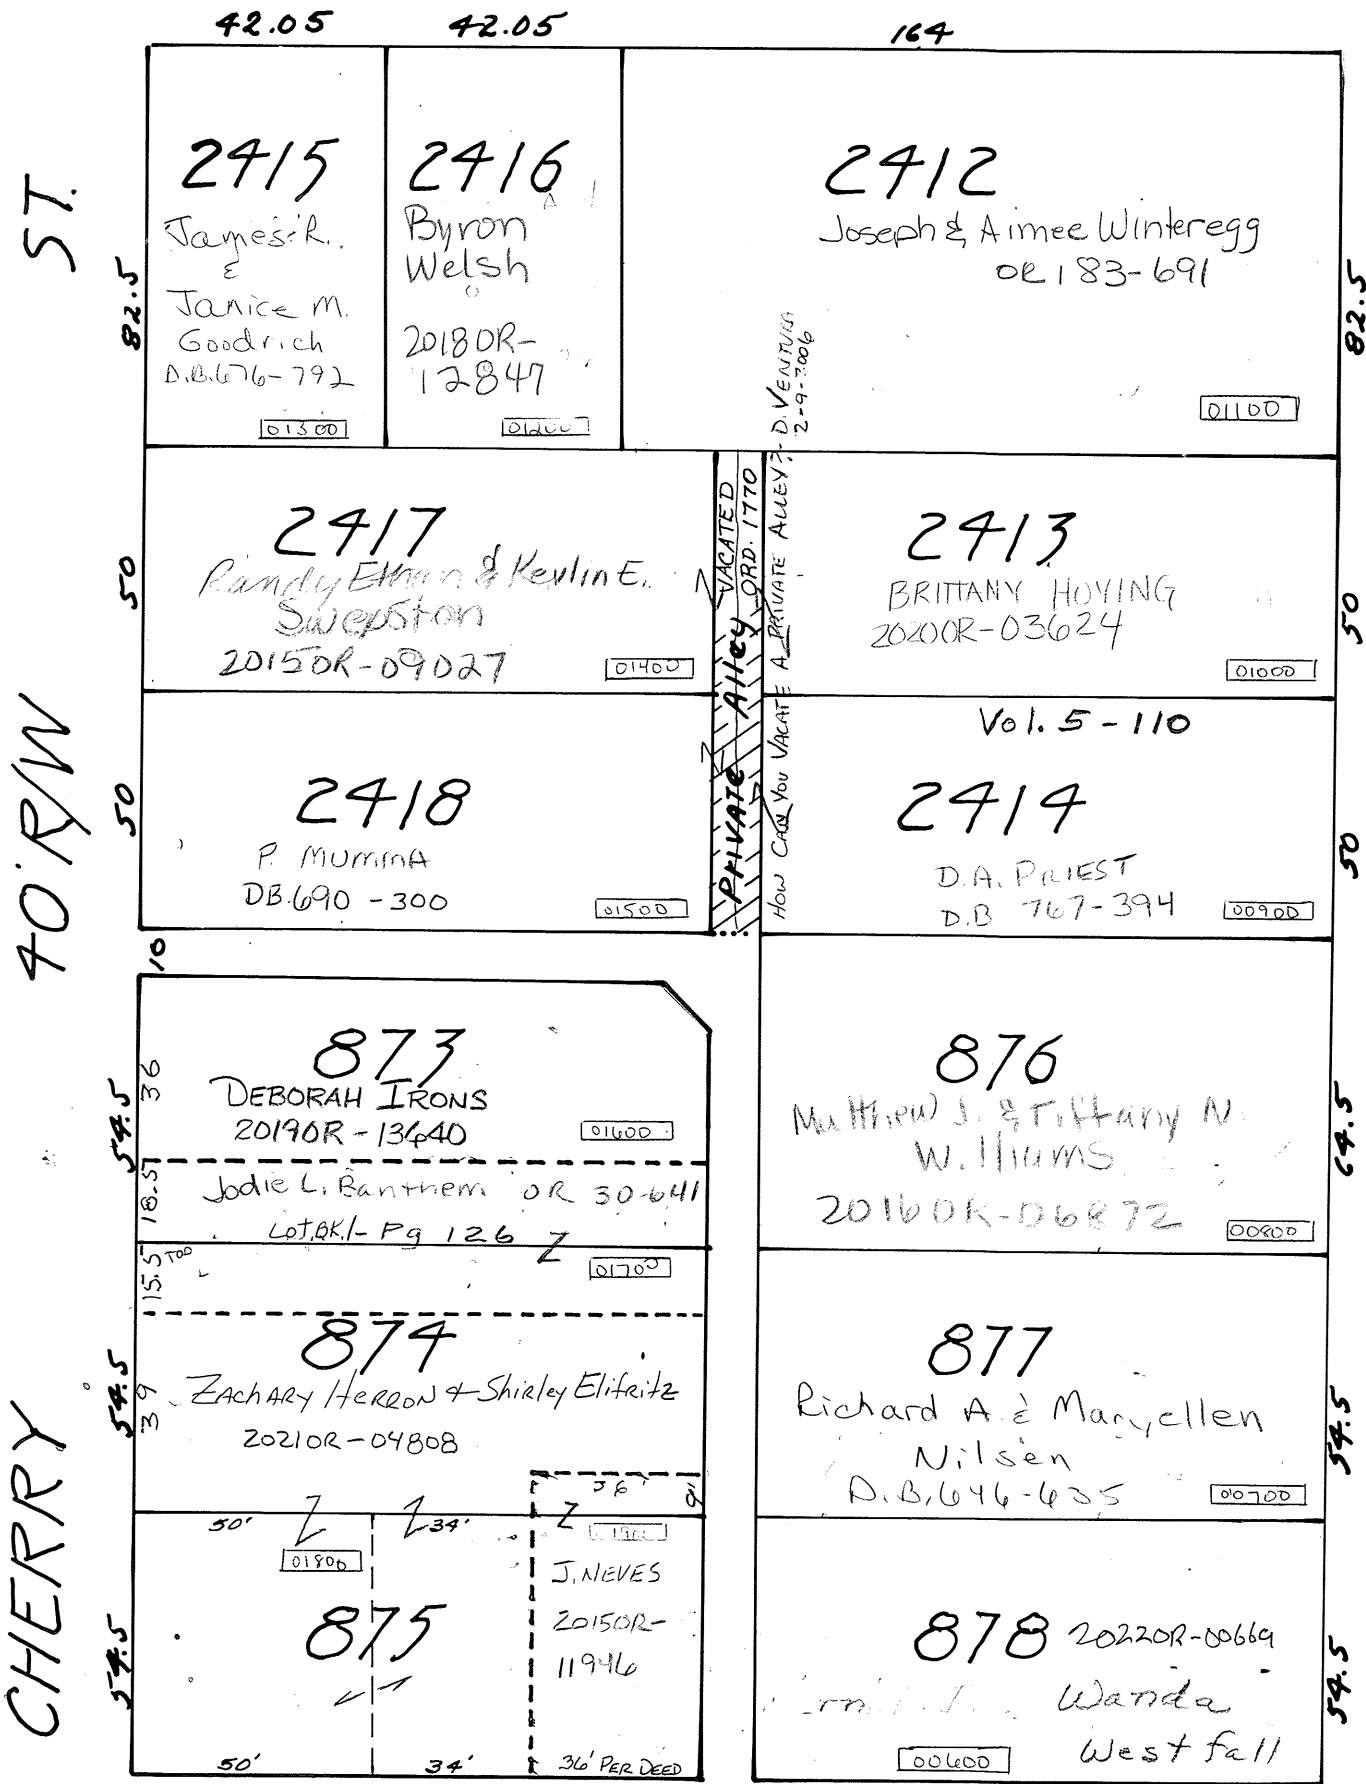 42.05 42.05 164
ST.
82.5
2415
James R.
&
Janice M.
Goodrich
D.B. 676-792
01300
2416
Byron
Welsh
2018OR-
12847
01200
2412
Joseph & Aimee Winteregg
OR 183-691
01100
82.5
50
2417
Randy Ethan & Kevlin E.
Swepston
2015OR-09027
01400
VACATED
ORD. 1770
PRIVATE Alley
HOW CAN YOU VACATE A PRIVATE ALLEY? - D. VENTURA
2-9-2006
2413
BRITTANY HOYING
2020OR-03624
01000
50
40' R/W
50
2418
P. MUMMA
DB. 690 - 300
01500
Vol. 5 - 110
2414
D.A. PRIEST
D.B 767-394
00900
50
10
54.5
36
873
DEBORAH IRONS
2019OR-13640
01600
18.5
Jodie L. Banthem OR 30-641
LOT.BK.1- Pg 126
Z
15.5 TOD
01700
876
Matthew J. & Tiffany N.
Williams
2016OR-06872
00800
64.5
54.5
39
874
ZACHARY HERRON & Shirley Elifritz
2021OR-04808
36'
9'
877
Richard A. & Maryellen
Nilsen
D.B. 646-635
00700
54.5
CHERRY
54.5
50' Z Z 34' Z
01800
875
50' 34' 36' PER DEED
J. NEVES
2015OR-
11946
878 2022OR-00669
Wanda
Westfall
00600
54.5